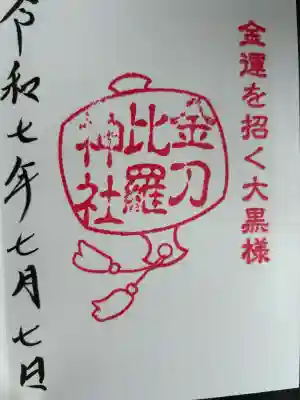 金運を招く大黒様
金刀
比羅
神社
令和七年七月七日